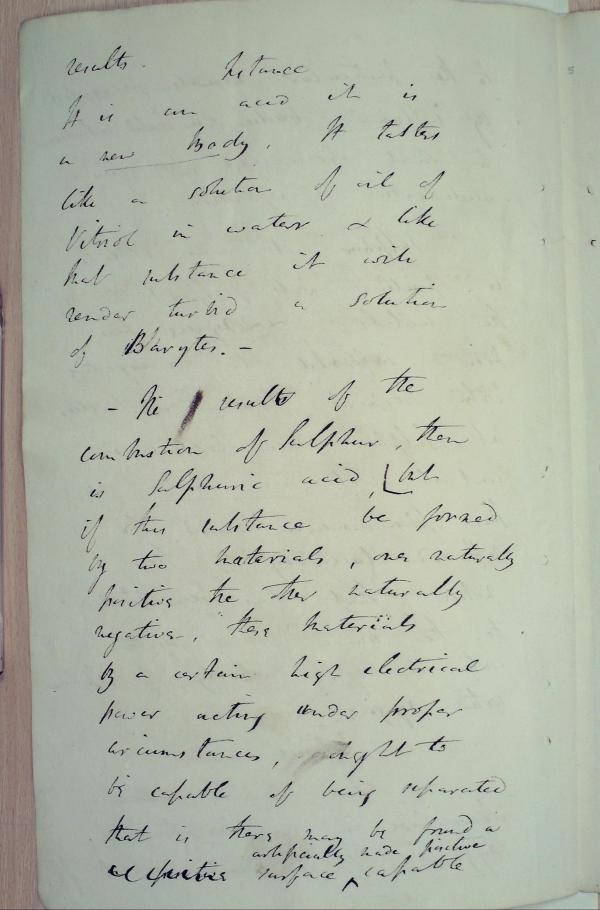 results. Instance
It is an acid it is
a new body. It tastes
like a solution of oil of
Vitriol in water & like
that substance it will
render turbid a solution
of Barytes. —
— The results of the
combustion of Sulphur, then
is Sulphuric acid, but
if this substance be formed
by two materials, one naturally
positive the other naturally
negative, these materials
by a certain high electrical
power acting under proper
circumstances, ought to
be capable of being separated
that is there may be found a
artificially made positive
surface capable